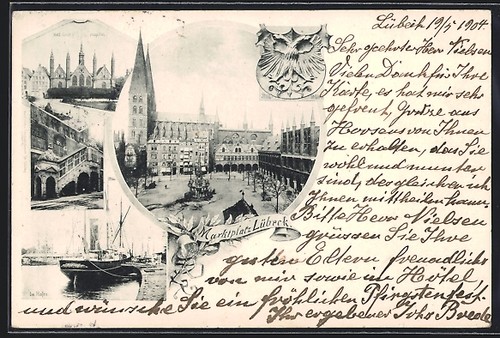 Lübeck 19/5 1904.
Sehr geehrter Herr Nielsen
Vielen Dank für Ihre
Karte, es hat mir sehr
gefreut, Grüze aus
Horsens von Ihnen
zu erhalten, das Sie
wohl und munter
sind, desgleichen ich
Ihnen mittheilen kann,
Bitte Herr Nielsen
grüssen Sie Ihre
guten Eltern freundlichs
von mir sowie im Hôtel
und wünsche Sie ein fröhlichen Pfingstenfest.
Ihr ergebener Johs
Marktplatz Lübeck